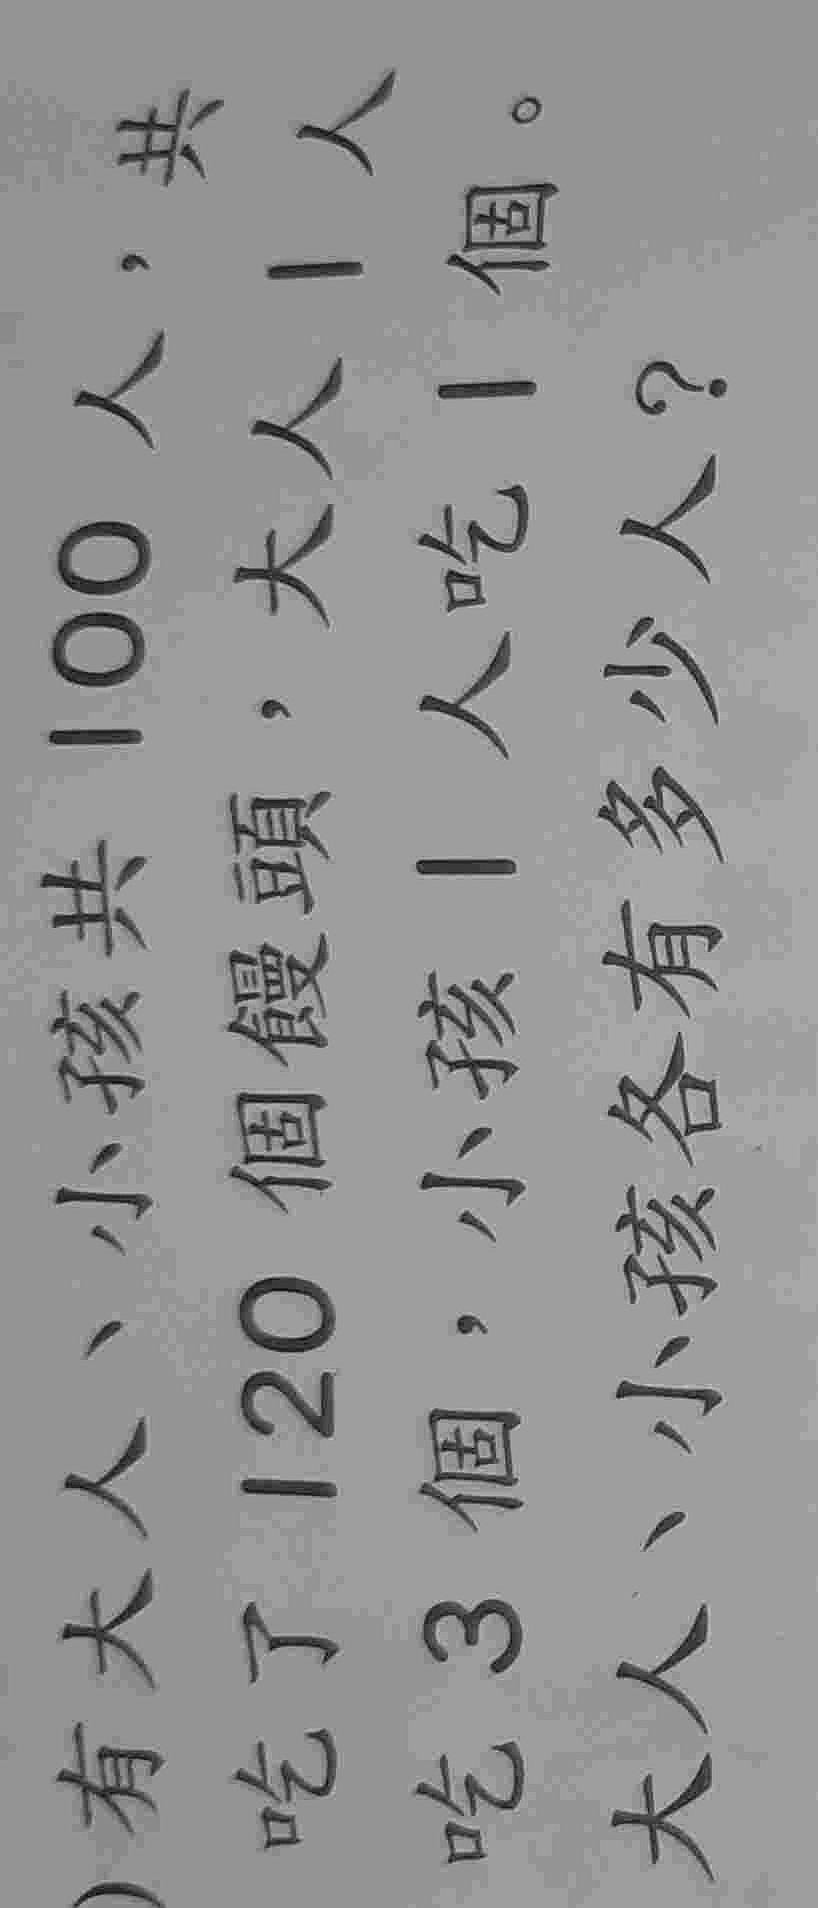 )有大人、小孩共 100 人,共
吃了 120 個饅頭,大人 1 人
吃 3 個,小孩 1 人吃 1 個。
大人、小孩各有多少人?